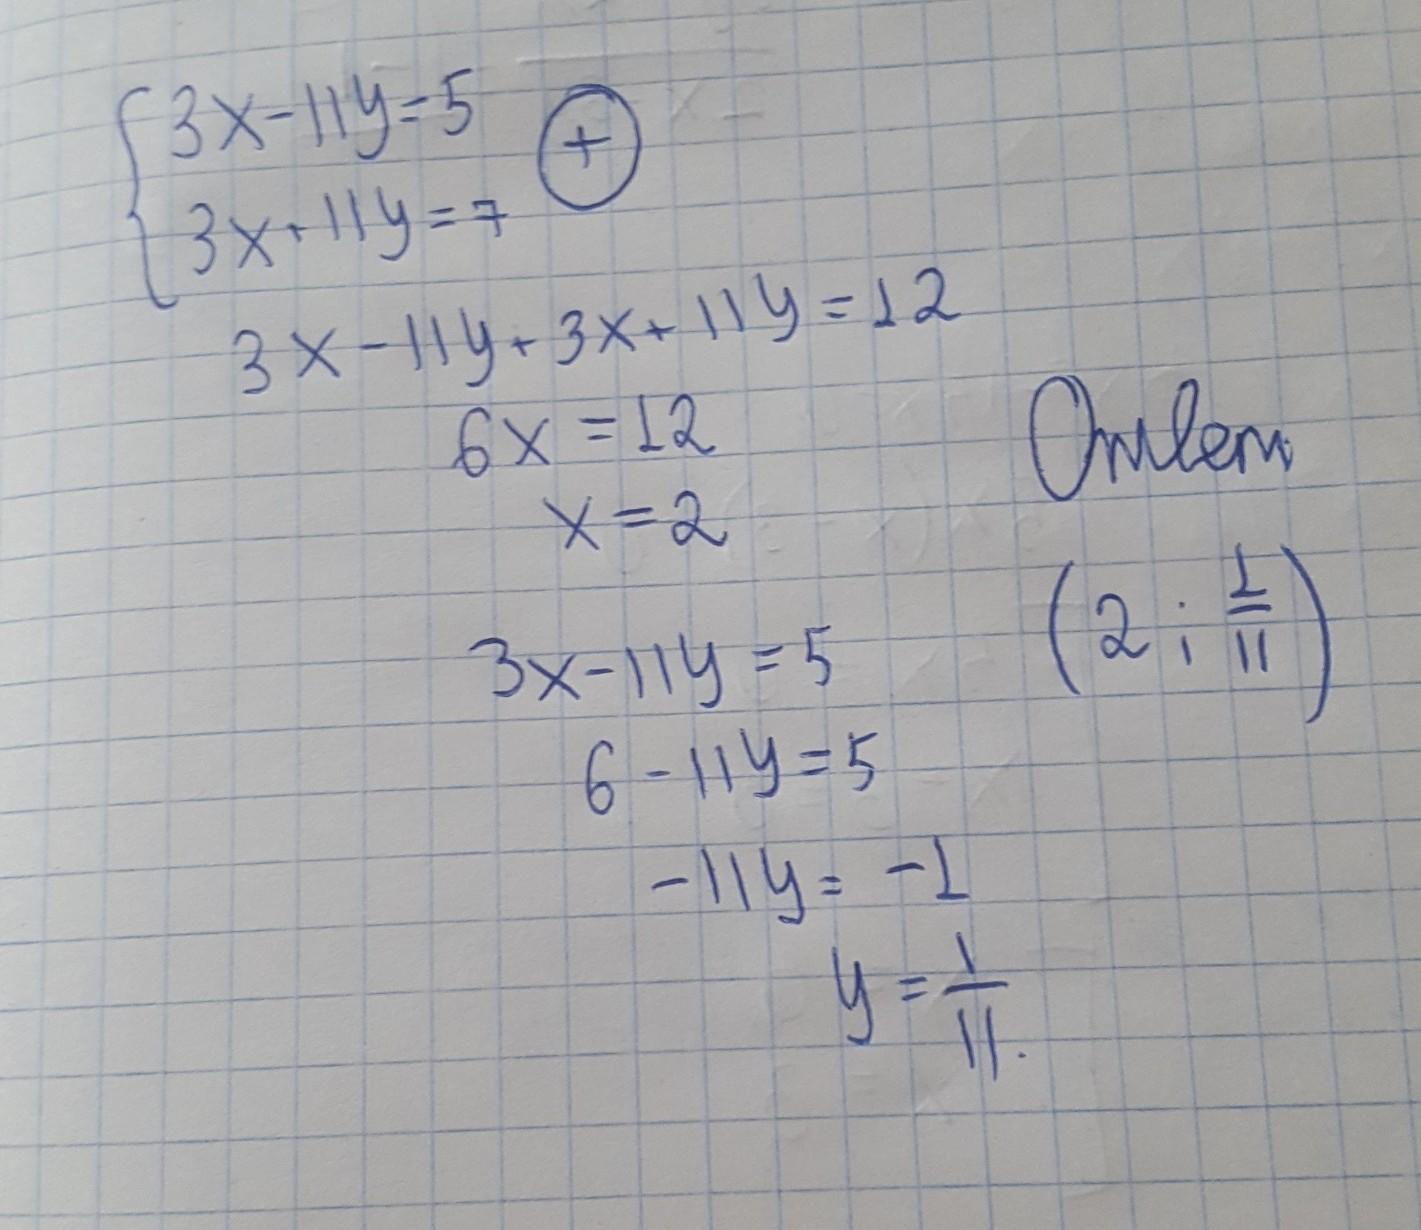 3x-11y=5
3x+11y=7
+
3x-11y+3x+11y=12
6x=12
x=2
3x-11y=5
6-11y=5
-11y=-1
y=1/11.
Ответ
(2; 1/11)